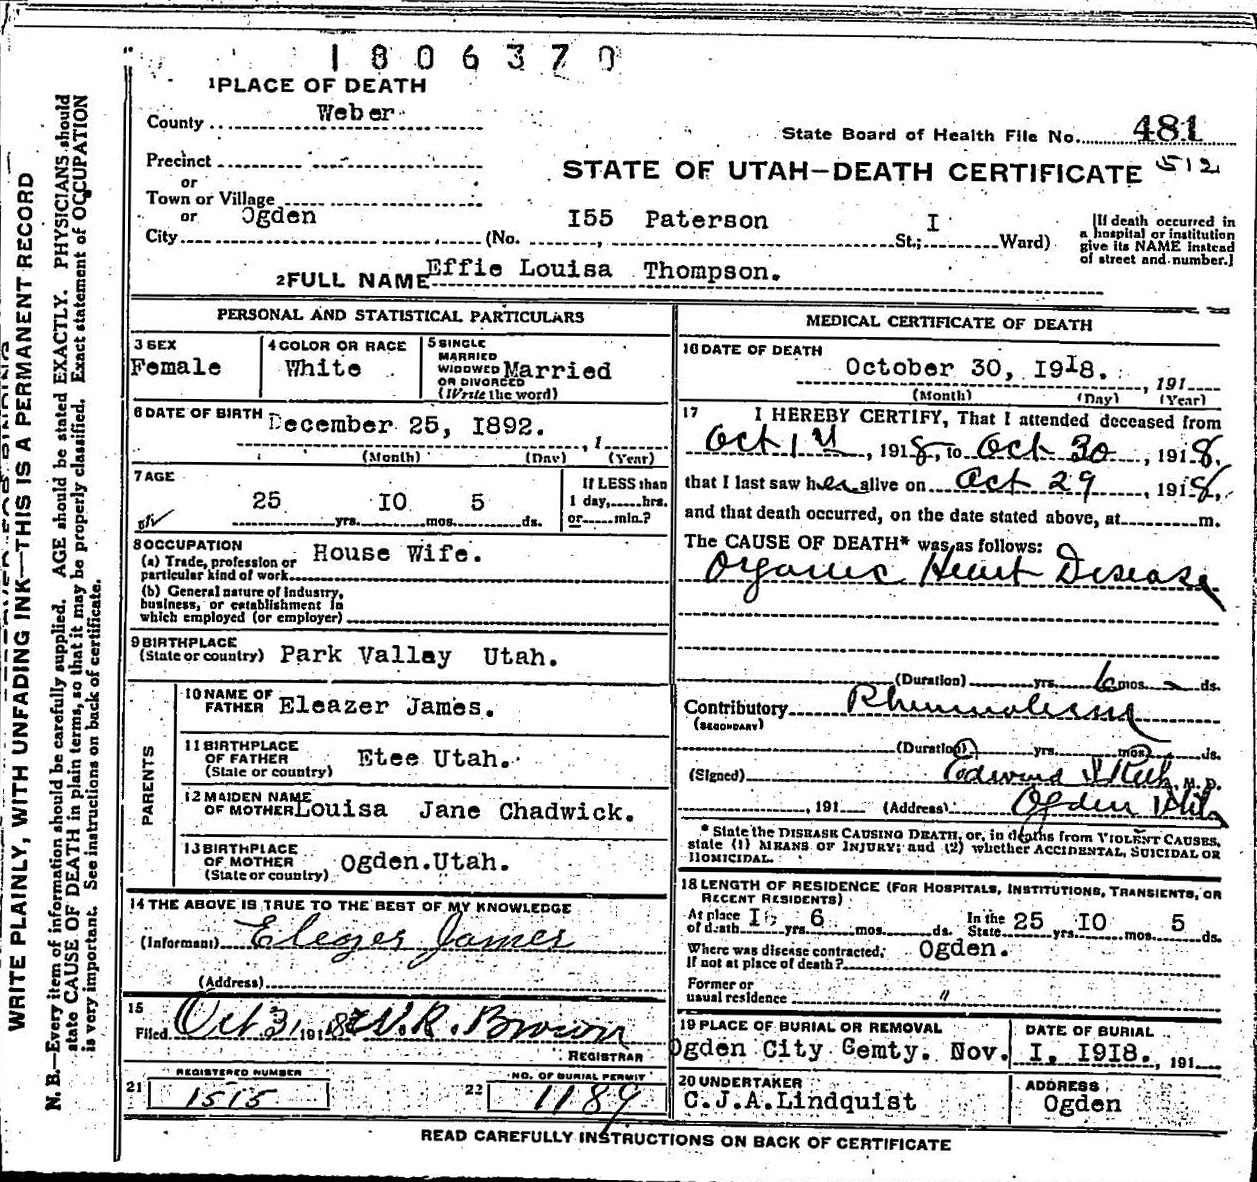 1806370
1 PLACE OF DEATH
County Weber
State Board of Health File No. 481
Precinct
STATE OF UTAH—DEATH CERTIFICATE 512
or
Town or Village
or Ogden
City (No. I55 Paterson St.; I Ward)
[If death occurred in a hospital or institution give its NAME instead of street and number.]
2 FULL NAME Effie Louisa Thompson.
PERSONAL AND STATISTICAL PARTICULARS
3 SEX Female
4 COLOR OR RACE White
5 SINGLE MARRIED WIDOWED OR DIVORCED (Write the word) Married
6 DATE OF BIRTH December 25, I892. , 1
(Month) (Day) (Year)
7 AGE
25 yrs. I0 mos. 5 ds.
If LESS than 1 day, hrs. or min.?
8 OCCUPATION
(a) Trade, profession or particular kind of work House Wife.
(b) General nature of industry, business, or establishment in which employed (or employer)
9 BIRTHPLACE
(State or country) Park Valley Utah.
PARENTS
10 NAME OF FATHER Eleazer James.
11 BIRTHPLACE OF FATHER (State or country) Etee Utah.
12 MAIDEN NAME OF MOTHER Louisa Jane Chadwick.
13 BIRTHPLACE OF MOTHER (State or country) Ogden.Utah.
14 THE ABOVE IS TRUE TO THE BEST OF MY KNOWLEDGE
(Informant) Elezer James
(Address)
15
Filed Oct 31 1918 W.R. Brown
REGISTRAR
21 REGISTERED NUMBER 1515
22 NO. OF BURIAL PERMIT 1189
MEDICAL CERTIFICATE OF DEATH
16 DATE OF DEATH
October 30, I9I8. , 191
(Month) (Day) (Year)
17 I HEREBY CERTIFY, That I attended deceased from
Oct 1st, 1918, to Oct 30, 1918,
that I last saw her alive on Oct 29, 1918,
and that death occurred, on the date stated above, at m.
The CAUSE OF DEATH* was as follows:
Organic Heart Disease
(Duration) yrs. 6 mos. ds.
Contributory Rheumatism
(SECONDARY)
(Duration) yrs. mos. ds.
(Signed) Edward I Rich, M.D.
, 191 (Address) Ogden Utah
* State the DISEASE CAUSING DEATH, or, in deaths from VIOLENT CAUSES, state (1) MEANS OF INJURY; and (2) whether ACCIDENTAL, SUICIDAL OR HOMICIDAL.
18 LENGTH OF RESIDENCE (FOR HOSPITALS, INSTITUTIONS, TRANSIENTS, OR RECENT RESIDENTS)
At place of death yrs. 6 mos. ds. In the State 25 yrs. I0 mos. 5 ds.
Where was disease contracted, If not at place of death? Ogden.
Former or usual residence "
19 PLACE OF BURIAL OR REMOVAL
DATE OF BURIAL
Ogden City Cemty. Nov. I. I9I8. , 191
20 UNDERTAKER
C.J.A.Lindquist
ADDRESS
Ogden
READ CAREFULLY INSTRUCTIONS ON BACK OF CERTIFICATE
WRITE PLAINLY, WITH UNFADING INK—THIS IS A PERMANENT RECORD
N. B.—Every item of information should be carefully supplied. AGE should be stated EXACTLY. PHYSICIANS should
state CAUSE OF DEATH in plain terms, so that it may be properly classified. Exact statement of OCCUPATION
is very important. See instructions on back of certificate.